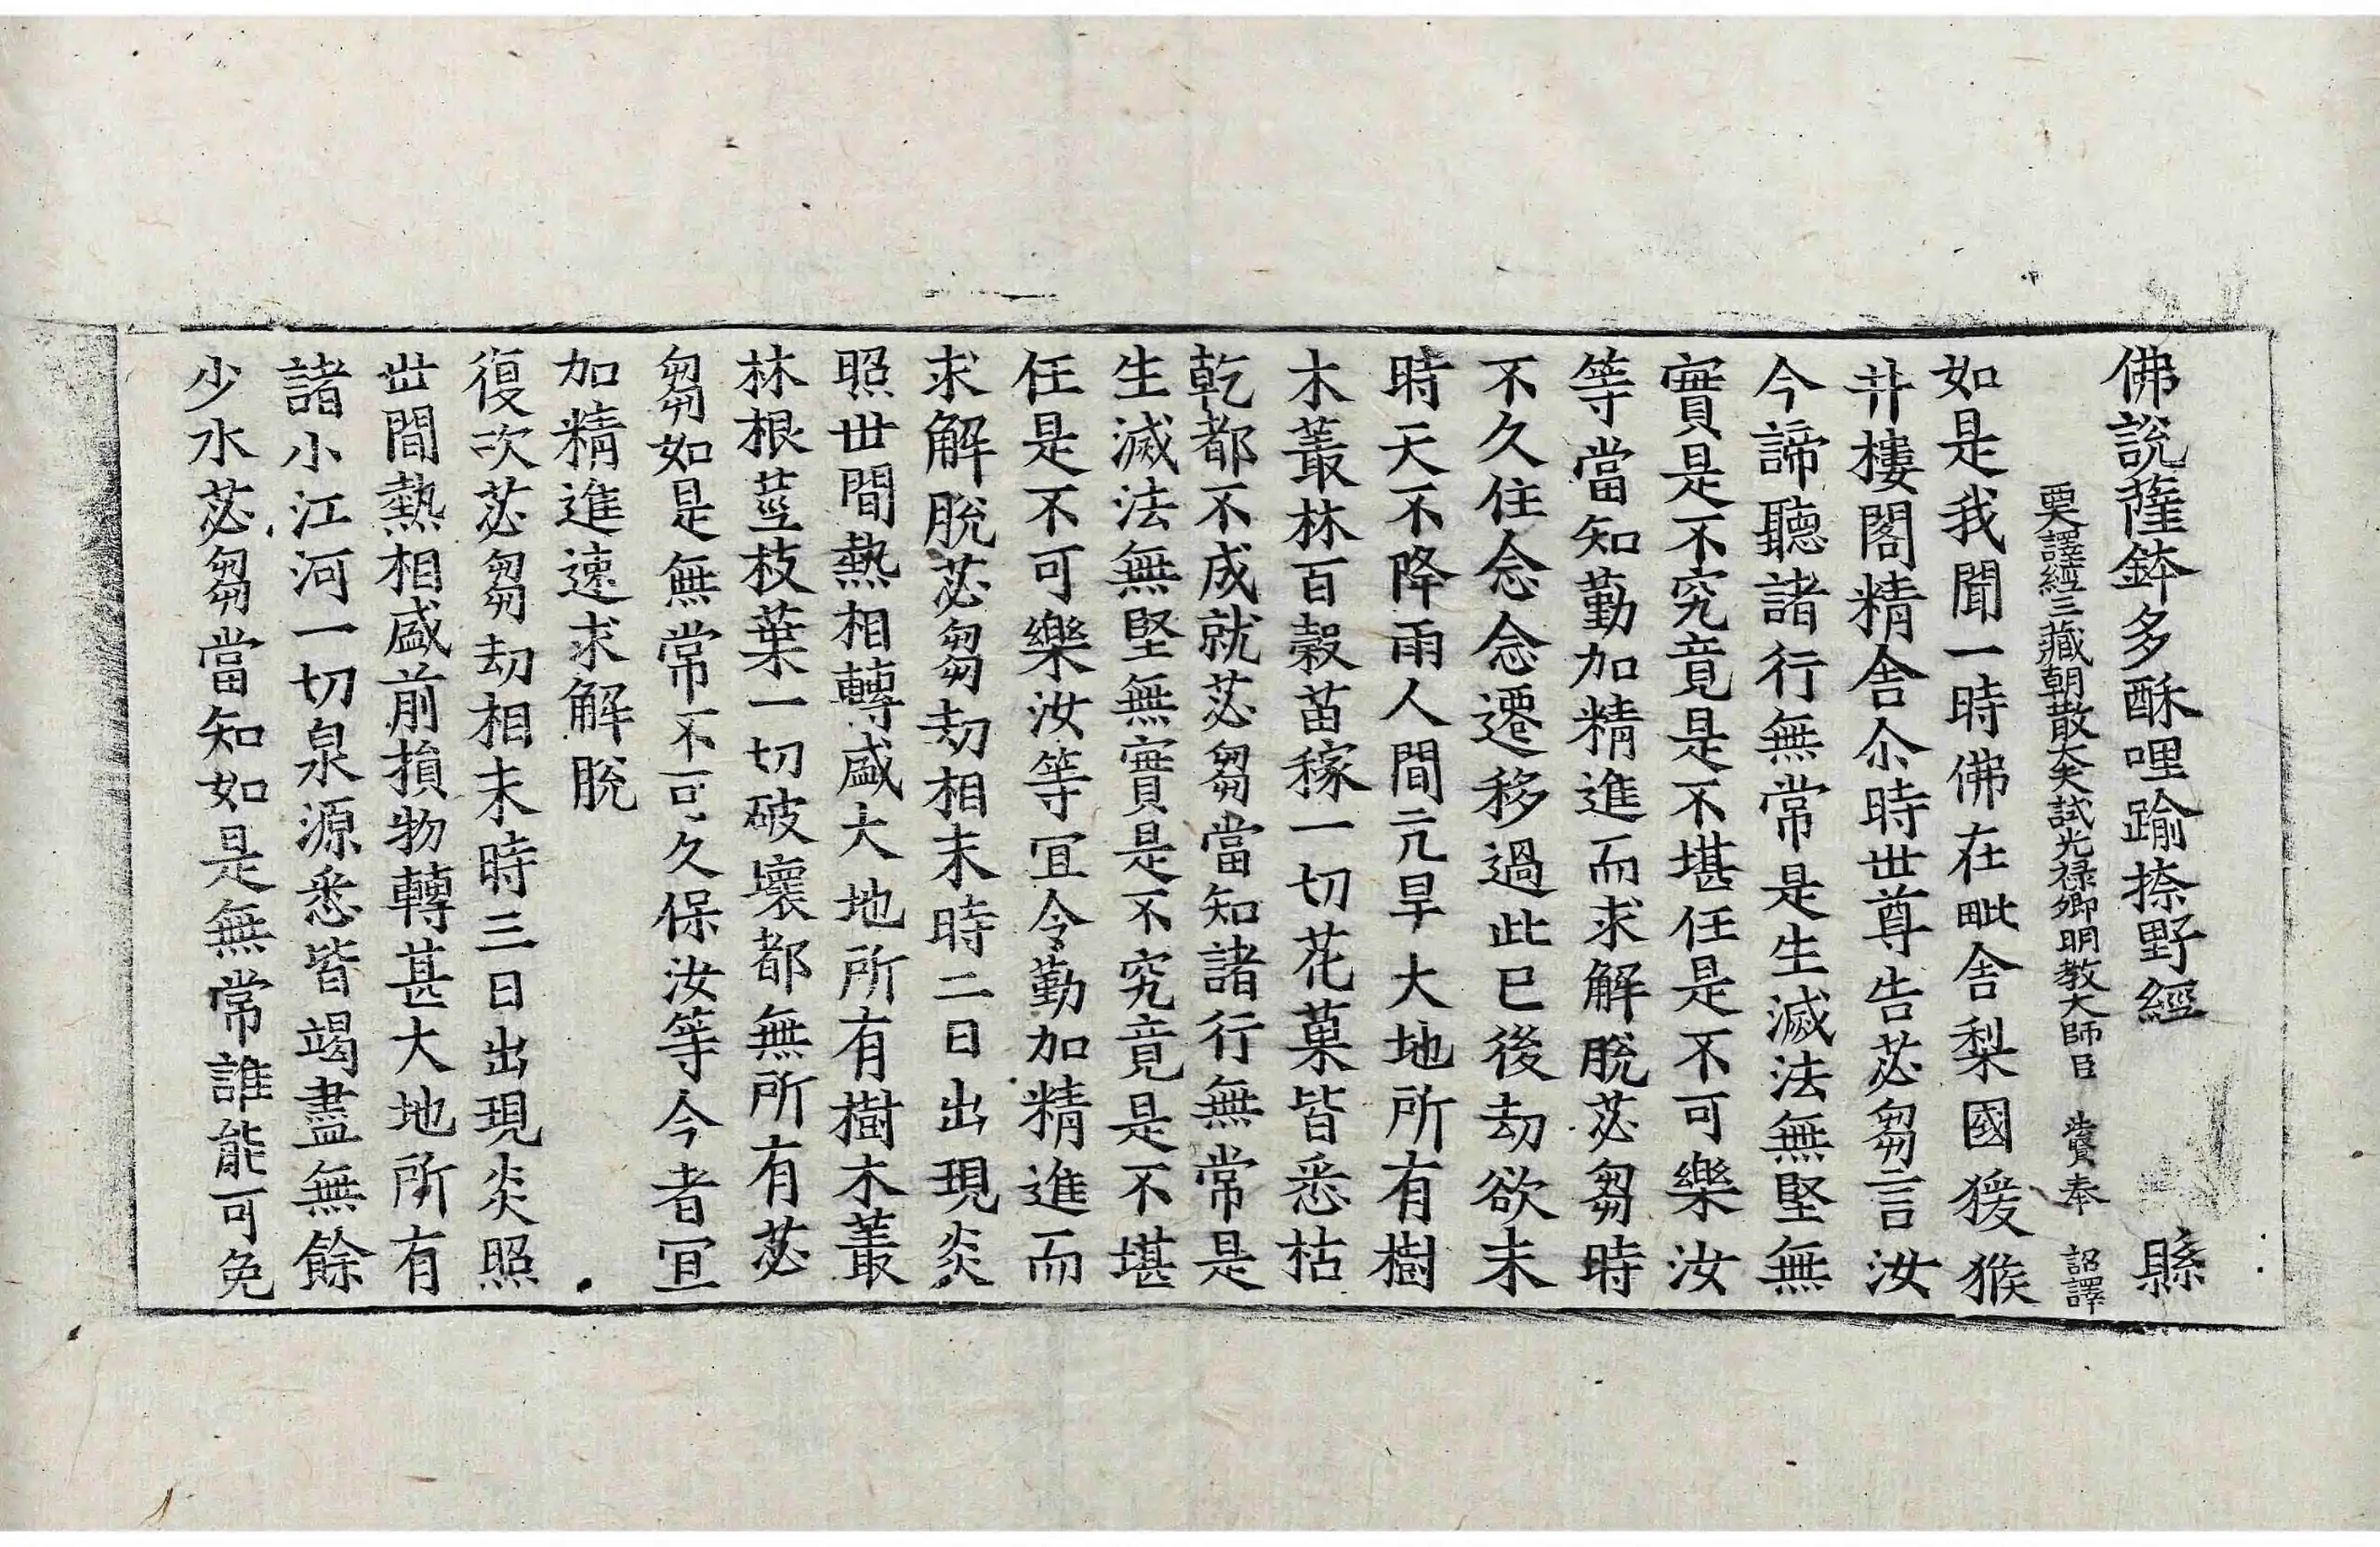 佛說薩鉢多酥哩踰捺野經 縣
西天譯經三藏朝散大夫試光祿卿明教大師臣 法賢奉 詔譯
如是我聞一時佛在毗舍梨國猨猴
井樓閣精舍尒時世尊告苾芻言汝
今諦聽諸行無常是生滅法無堅無
實是不究竟是不堪任是不可樂汝
等當知勤加精進而求解脫苾芻時
不久住念念遷移過此已後劫欲末
時天不降雨人間亢旱大地所有樹
木叢林百穀苗稼一切花菓皆悉枯
乾都不成就苾芻當知諸行無常是
生滅法無堅無實是不究竟是不堪
任是不可樂汝等宜令勤加精進而
求解脫苾芻劫相末時二日出現炎
照世間熱相轉盛大地所有樹木叢
林根莖枝葉一切破壞都無所有苾
芻如是無常不可久保汝等今者宜
加精進速求解脫
復次苾芻劫相末時三日出現炎照
世間熱相盛前損物轉甚大地所有
諸小江河一切泉源悉皆竭盡無餘
少水苾芻當知如是無常誰能可免